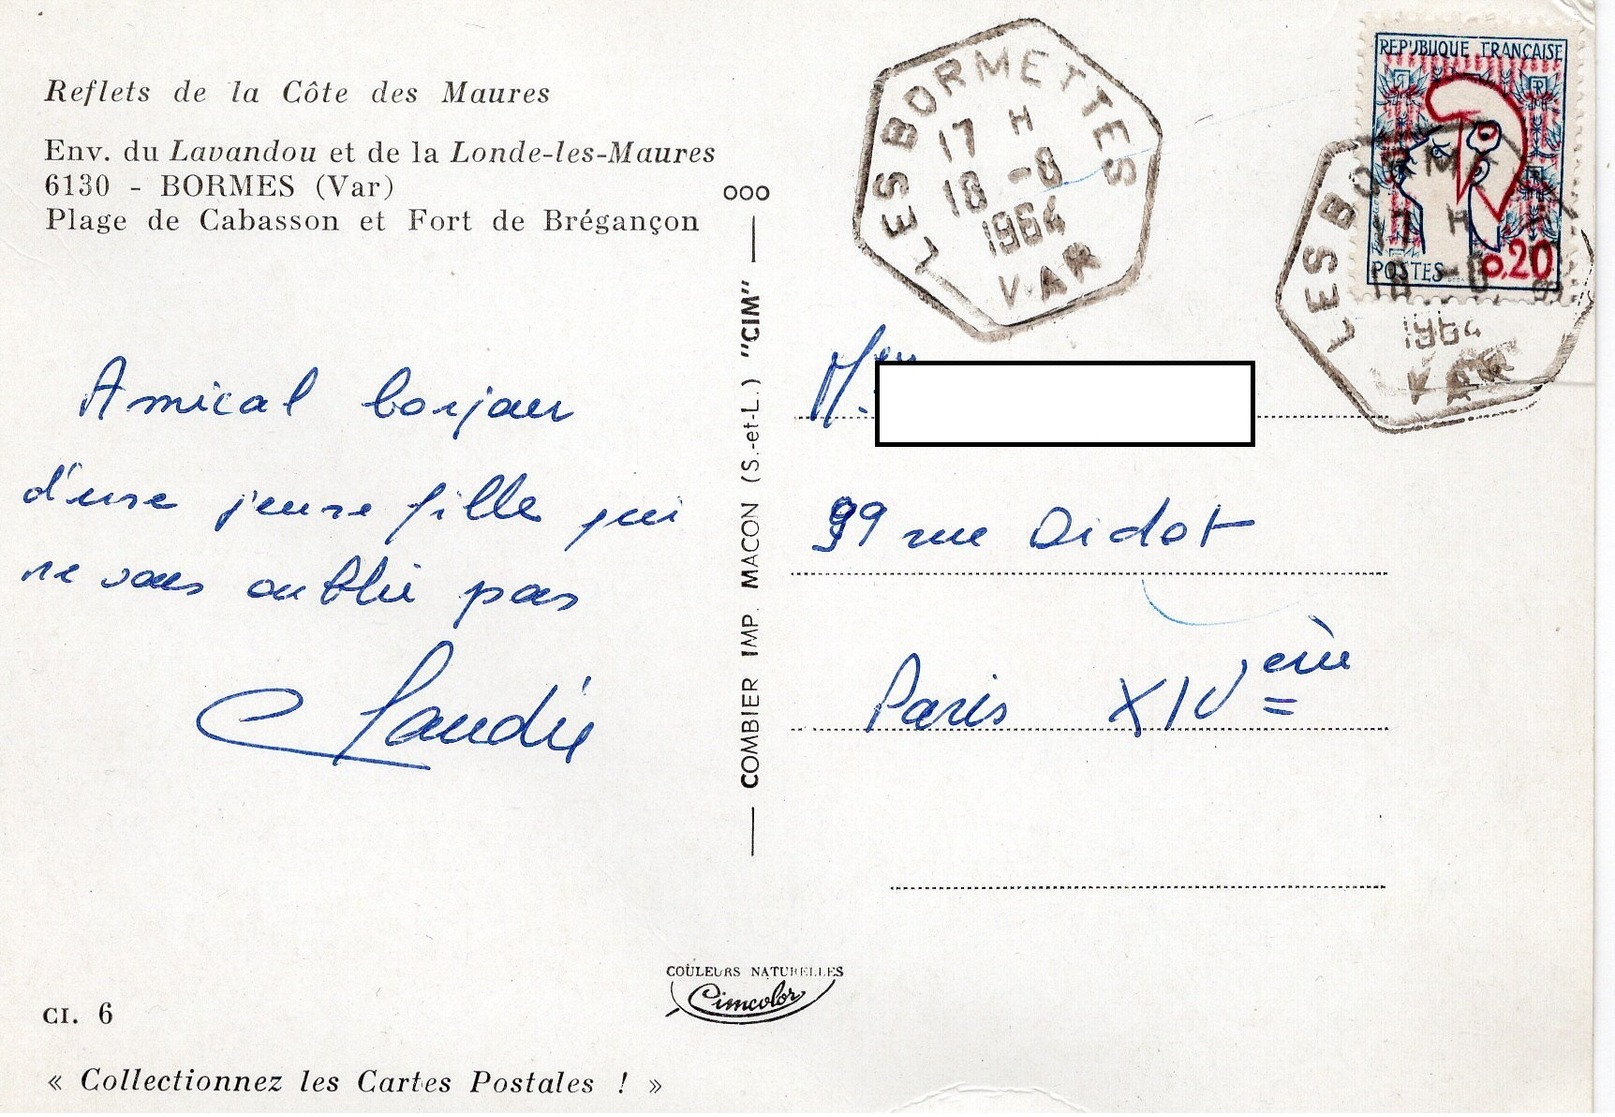 Reflets de la Côte des Maures
Env. du Lavandou et de la Londe-les-Maures
6130 - BORMES (Var)
Plage de Cabasson et Fort de Brégançon
Amical bonjour
d'une jeune fille qui
ne vous oublie pas
Claudie
CI. 6
« Collectionnez les Cartes Postales ! »
ooo
COMBIER IMP. MACON (S.-et-L.) "CIM"
COULEURS NATURELLES
Cimcolor
LES BORMETTES
17 H
18 -8
1964
VAR
REPUBLIQUE FRANÇAISE
POSTES
0.20
LES BORMETTES
17 H
18 -8
1964
VAR
99 rue Didot
Paris XIVème